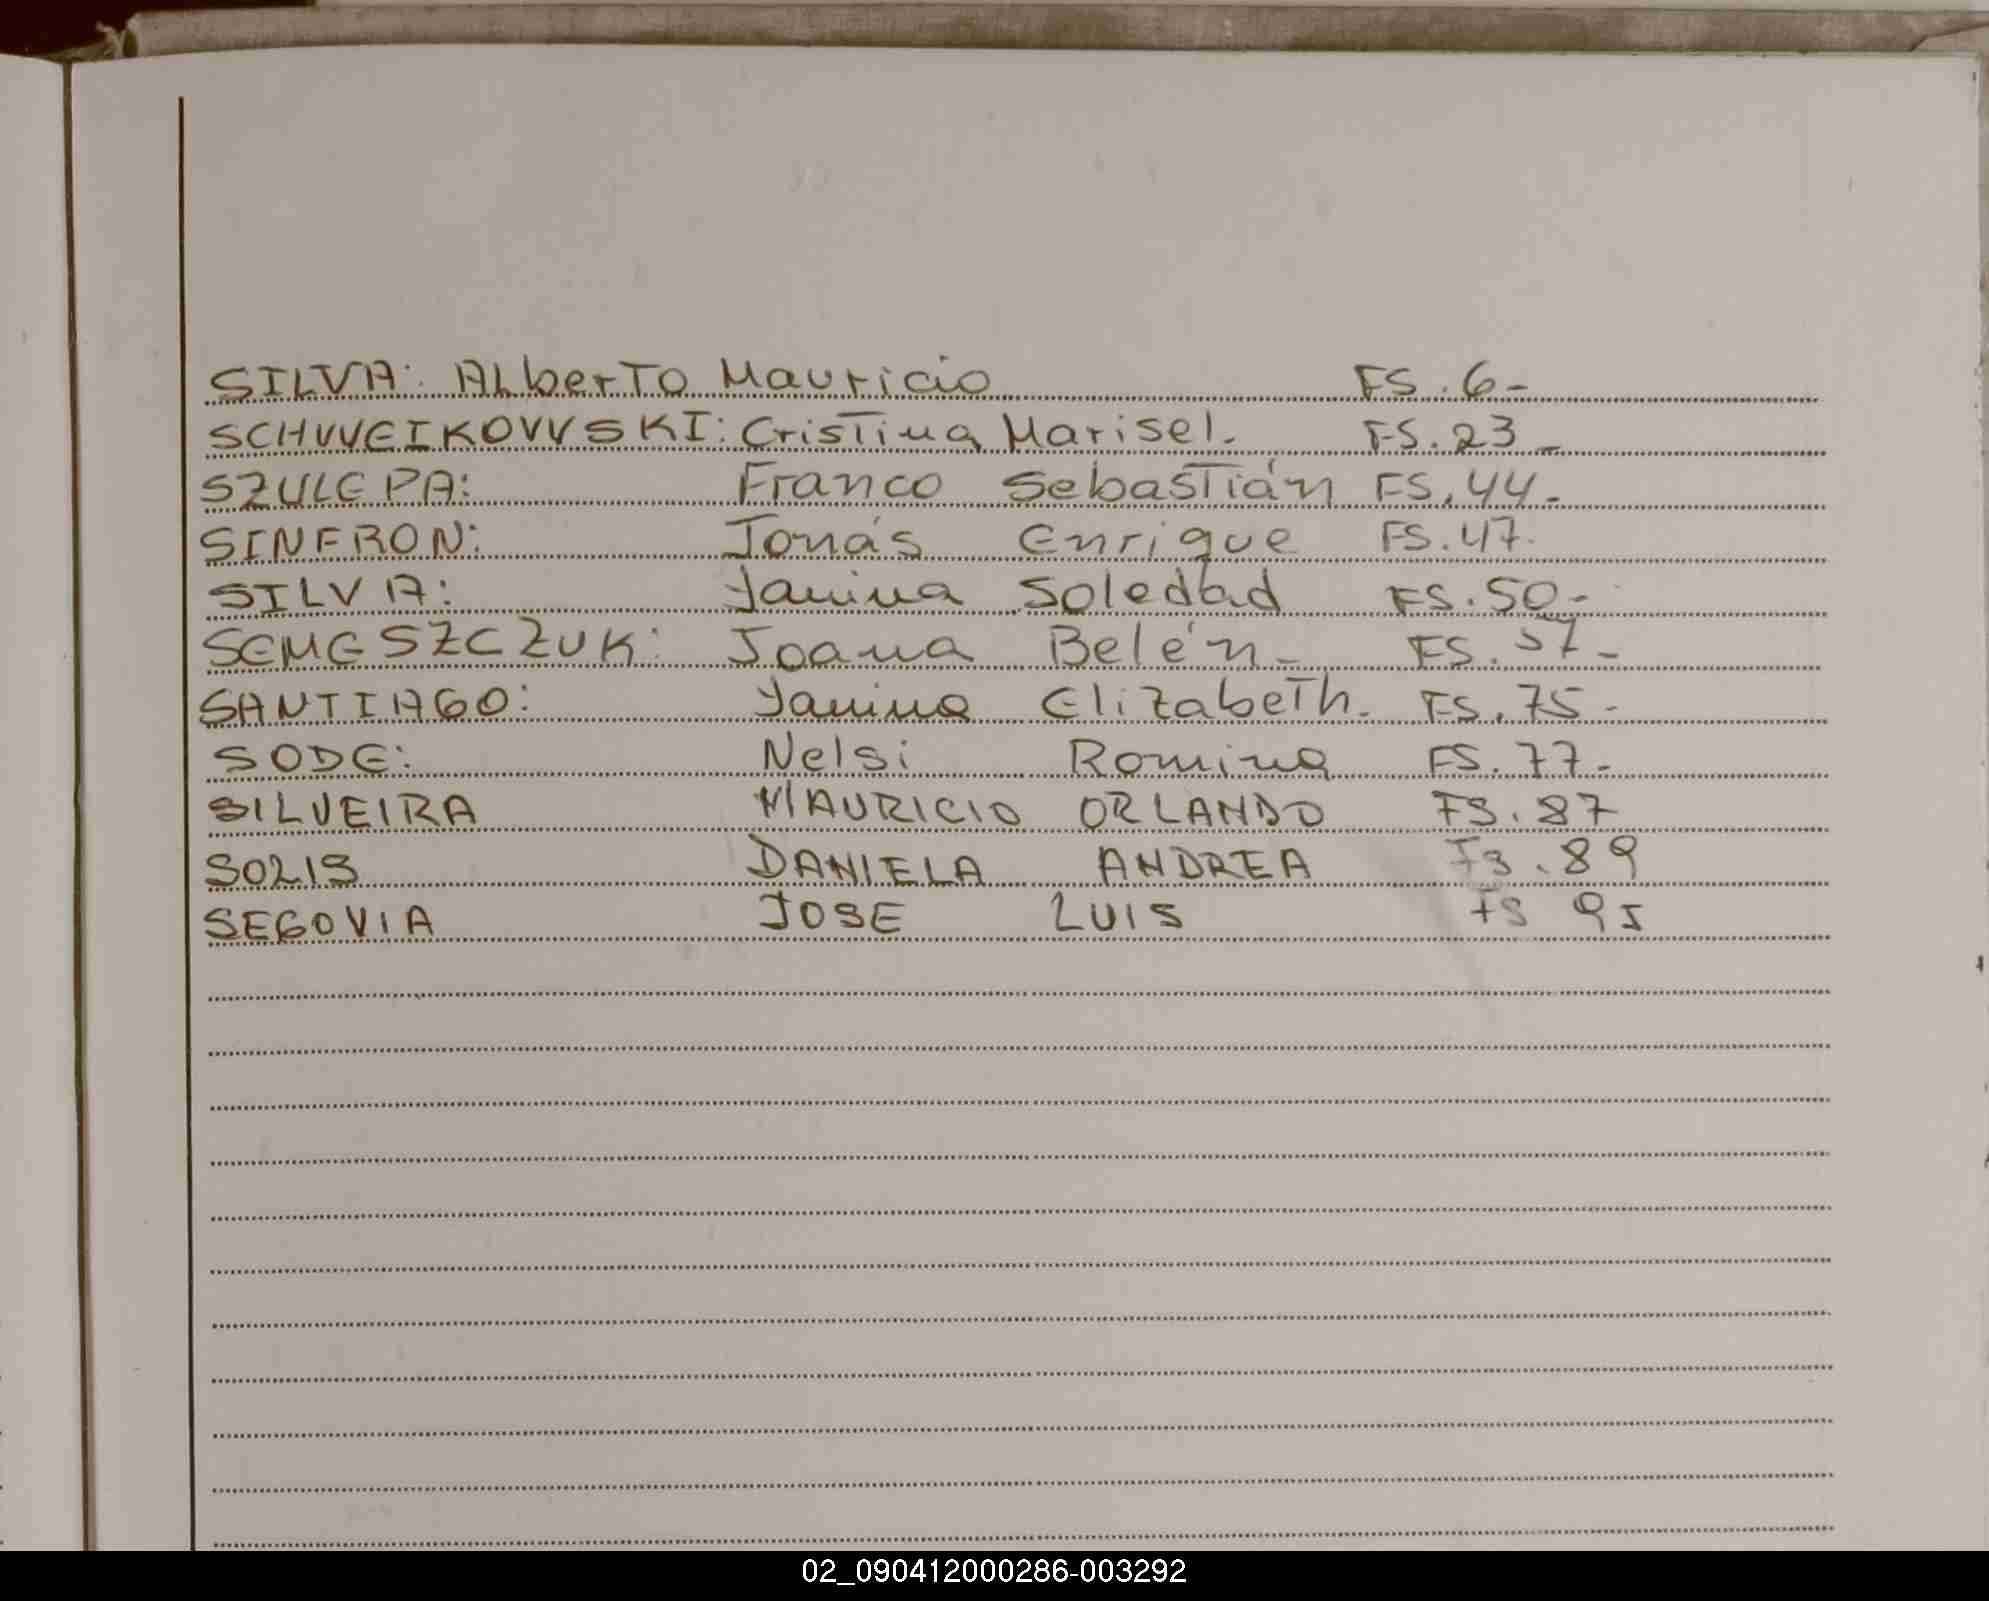 SILVA: ALberTo Mauricio FS. 6-
SCHWEIKOWSKI: CrisTina Marisel. FS. 23-
SZULEPA: Franco SebasTián FS. 44-
SINFRON: Jonás Enrique FS. 47.
SILVA: Yanina Soledad FS. 50-
SEMESZCZUK: Joana Belén- FS. 57-
SANTIAGO: Yanina ElizabeTh. FS. 75-
SODE: Nelsi Romina FS. 77-
SILVEIRA MAURICIO ORLANDO FS. 87
SOLIS DANIELA ANDREA FS. 89
SEGOVIA JOSE LUIS FS 95
02_090412000286-003292